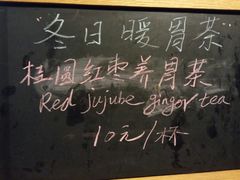 "冬日暖胃茶"
桂圆红枣养胃茶
Red jujube ginger tea
10元/杯